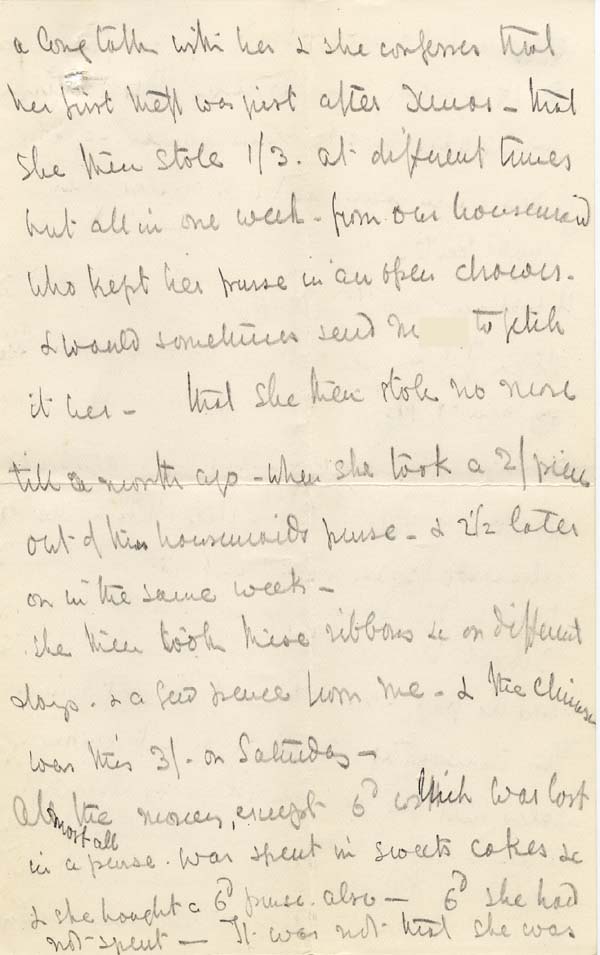 a long talk with her & she confesses that
her first theft was just after Xmas - that
She then stole 1/3. at different times
but all in one week - from our housemaid
who kept her purse in an open drawer.
& would sometimes send M to fetch
it her - that she then stole no more
till a month ago - when she took a 2/ piece
out of this housemaids purse - & 2/2 later
on in the same week -
She then took these ribbons &c on different
days. & a few pence from me - & the climax
was this 3/- on Saturday -
All the money, except 6d which was lost
most all
in a purse. was spent in sweets cakes &c
& she bought a 6d purse. also - 6d she had
not spent - It was not that she was